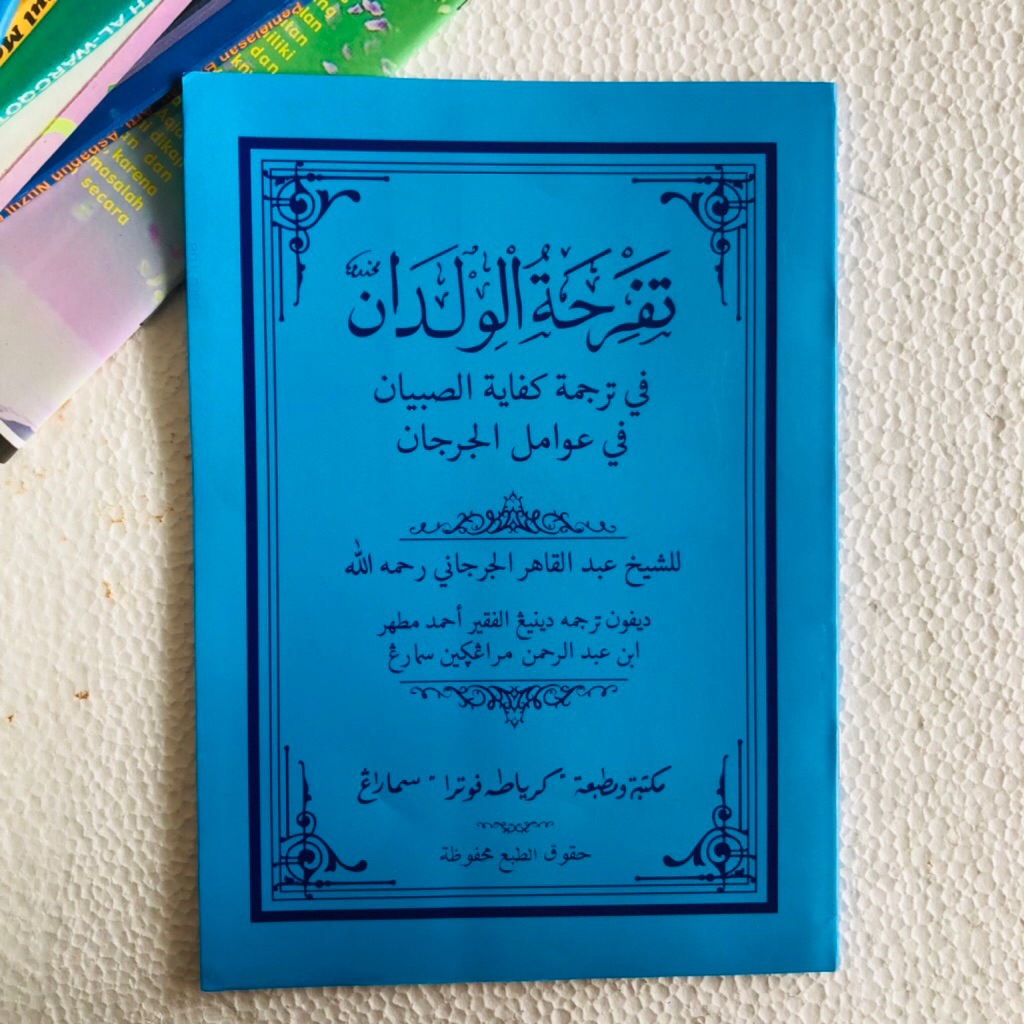 تَفْرِحَةُ الْوِلْدَانِ
في ترجمة كفاية الصبيان
في عوامل الجرجان
للشيخ عبد القاهر الجرجاني رحمه الله
ديفون ترجمه دينيڠ الفقير أحمد مطهر
ابن عبد الرحمن مراڠڮين سمارڠ
مكتبة ومطبعة "كرياطه فوترا" سماراڠ
حقوق الطبع محفوظة
H AL-WAROQO
dan
dikaji
karena
masalah
secara